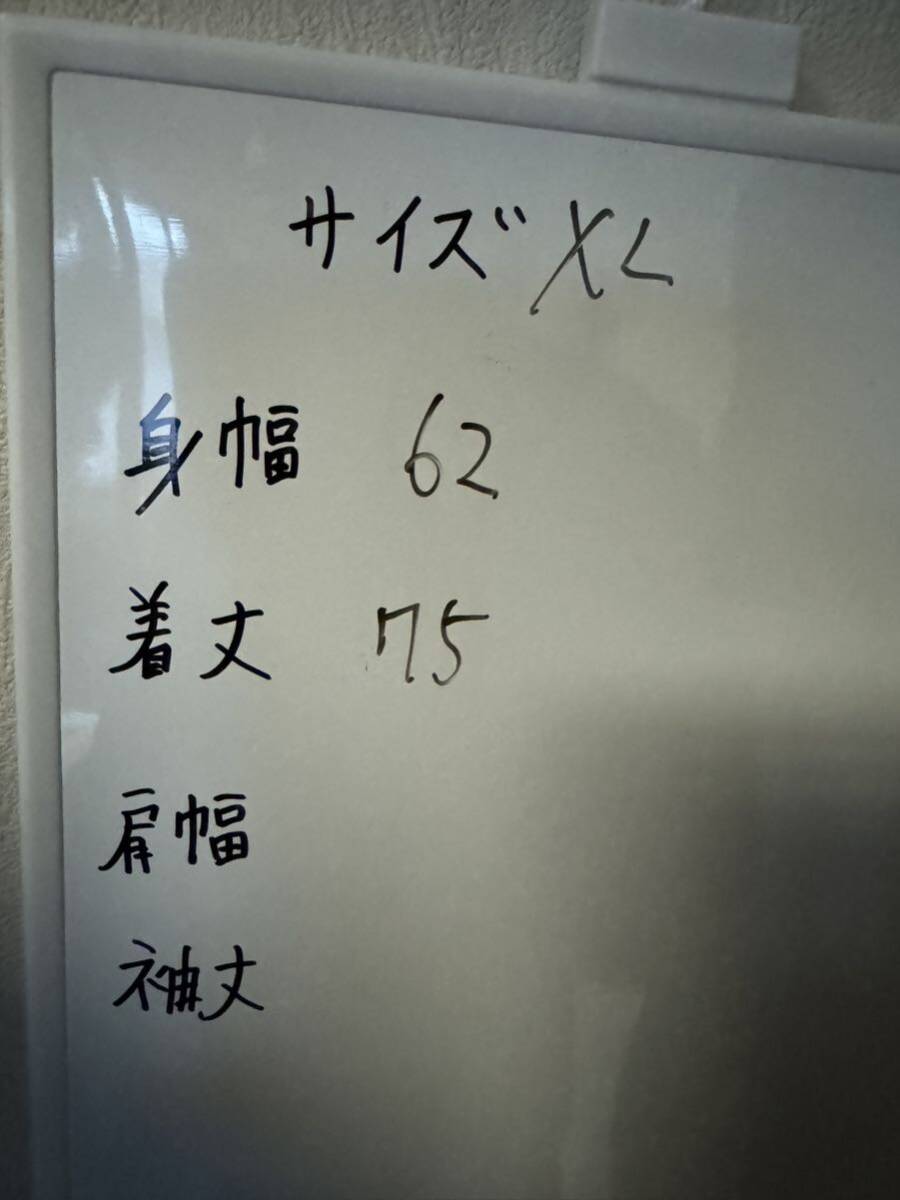 サイズ XL
身幅 62
着丈 75
肩幅
袖丈